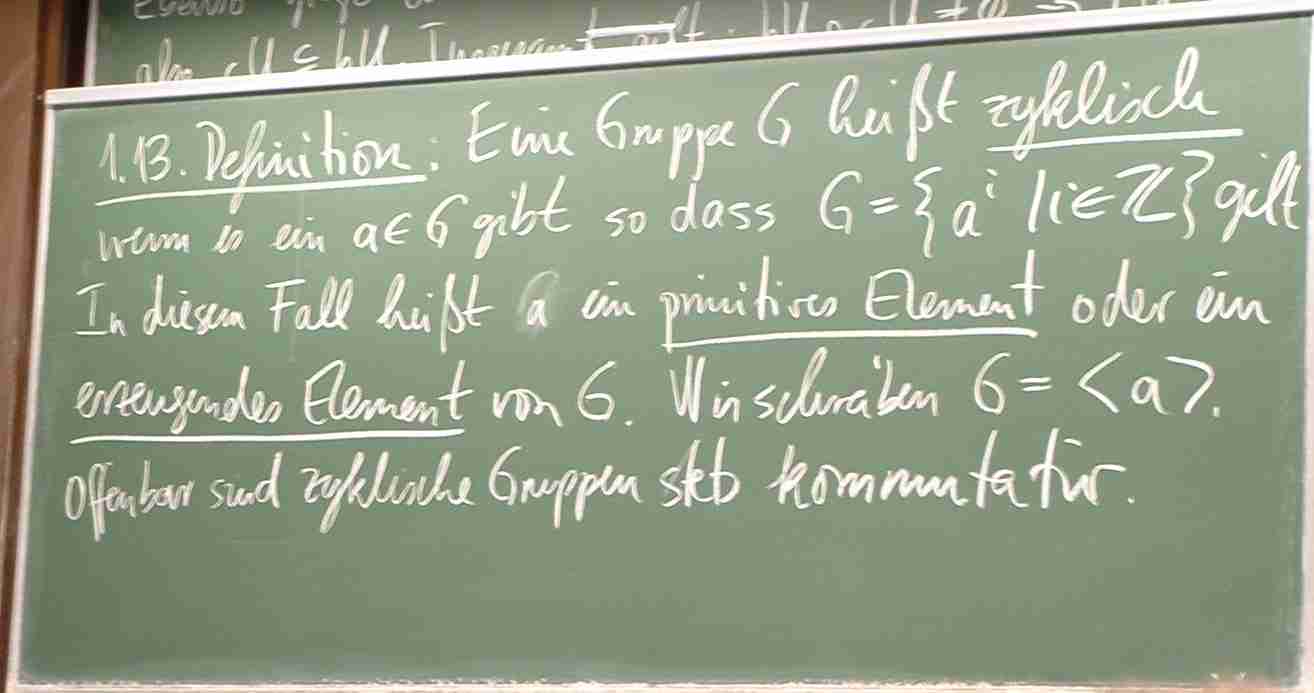 also cU ⊆ bU. Insgesamt gilt
1.13. Definition: Eine Gruppe G heißt zyklisch
wenn es ein a ∈ G gibt so dass G = {a^i | i ∈ ℤ} gilt
In diesem Fall heißt a ein primitives Element oder ein
erzeugendes Element von G. Wir schreiben G = <a>.
Offenbar sind zyklische Gruppen stets kommutativ.